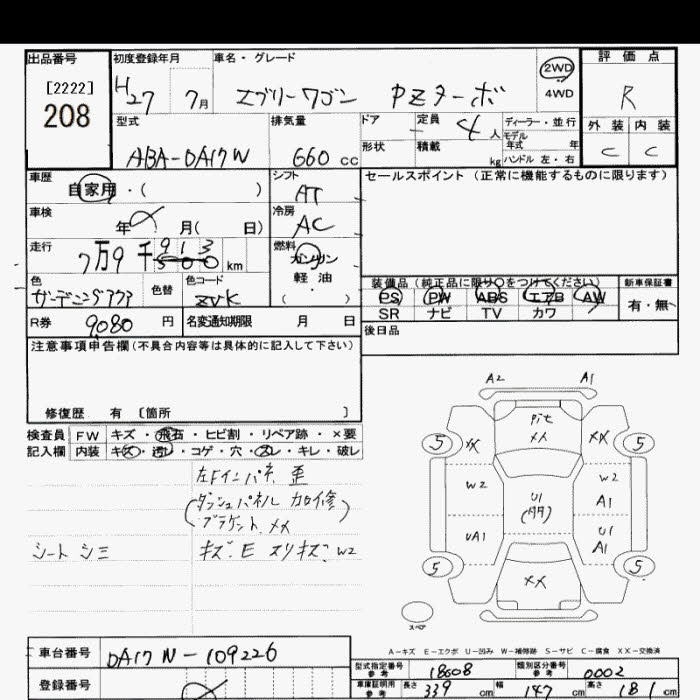 出品番号 初度登録年月 車名・グレード 評価点
[2222]
208
H27 7月 エブリーワゴン PZターボ 2WD 4WD R
型式 排気量 ドア 定員 4人 ディーラー・並行 外装 内装
モデル年式 年
ABA-DA17W 660cc 形状 積載 kg ハンドル 左・右 C C
車歴 シフト セールスポイント(正常に機能するものに限ります)
自家用・( ) AT
車検 冷房
年 月( 日) AC
走行 燃料
7万9千913 km ガソリン
500
軽油
( ・ )
色 色替 色コード
ガーデニングアクア ZVK
装備品(純正品に限り○をつけてください) 新車保証書
PS PW ABS エアB AW 有・無
SR ナビ TV カワ
R券 9080円 名変通知期限 月 日 後日品
注意事項申告欄(不具合内容等は具体的に記入して下さい)
修復歴 有〔箇所 〕
検査員 FW キズ・飛石・ヒビ割・リペア跡・×要
記入欄 内装 キズ・汚レ・コゲ・穴・スレ・キレ・破レ
左Fインパネ 歪
(ダッシュパネル 加修
ブラケット XX)
シート シミ キズ、E スリキズ、W2
A2 A1
Pit
5 XX XX XX 5
W2 W2
U1 A1
UA1 U1
A1
5 XX 5
スペア
A-キズ E-エクボ U-凹み W-補修跡 S-サビ C-腐食 XX-交換済
車台番号 DA17W-109226
登録番号
型式指定番号 参考 18608 類別区分番号 参考 0002
車庫証明用 参考 長さ 339cm 幅 147cm 高さ 181cm